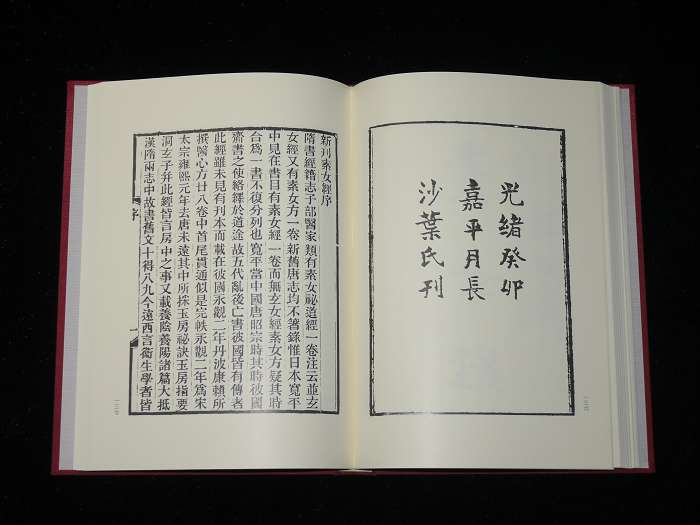 光緒癸卯
嘉平月長
沙葉氏刊
新刊素女經序
隋書經籍志子部醫家類有素女祕道經一卷注云並玄
女經又有素女方一卷新舊唐志均不著錄惟日本寬平
中見在書目有素女經一卷而無玄女經素女方疑其時
合爲一書不復分列也寬平當中國唐昭宗時其時彼國
齎書之使絡繹於道途故五代亂後亡書彼國皆有傳者
此經雖未見有刊本而載在彼國永觀二年丹波康賴所
撰醫心方廿八卷中首尾貫通似是完帙永觀二年爲宋
太宗雍熙元年去唐未遠其中所採玉房祕訣玉房指要
洞玄子并此經皆言房中之事又載養陰養陽諸篇大抵
漢隋兩志中故書舊文十得八九今遠西言衞生學者皆
序
一